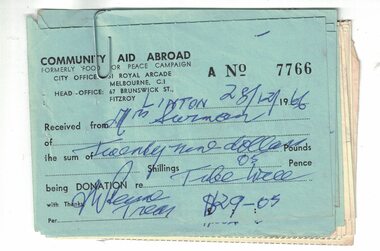 COMMUNITY AID ABROAD
FORMERLY "FOOD FOR PEACE CAMPAIGN
CITY OFFICE: 61 ROYAL ARCADE
MELBOURNE, C.1
HEAD-OFFICE: 67 BRUNSWICK ST.,
FITZROY
A No 7766
LINTON 28/12/1966
Received from Mrs
the sum of Twenty nine dollars Pounds
05
Shillings Pence
being DONATION re Tube Well
with Thanks
Per Treas $29-05